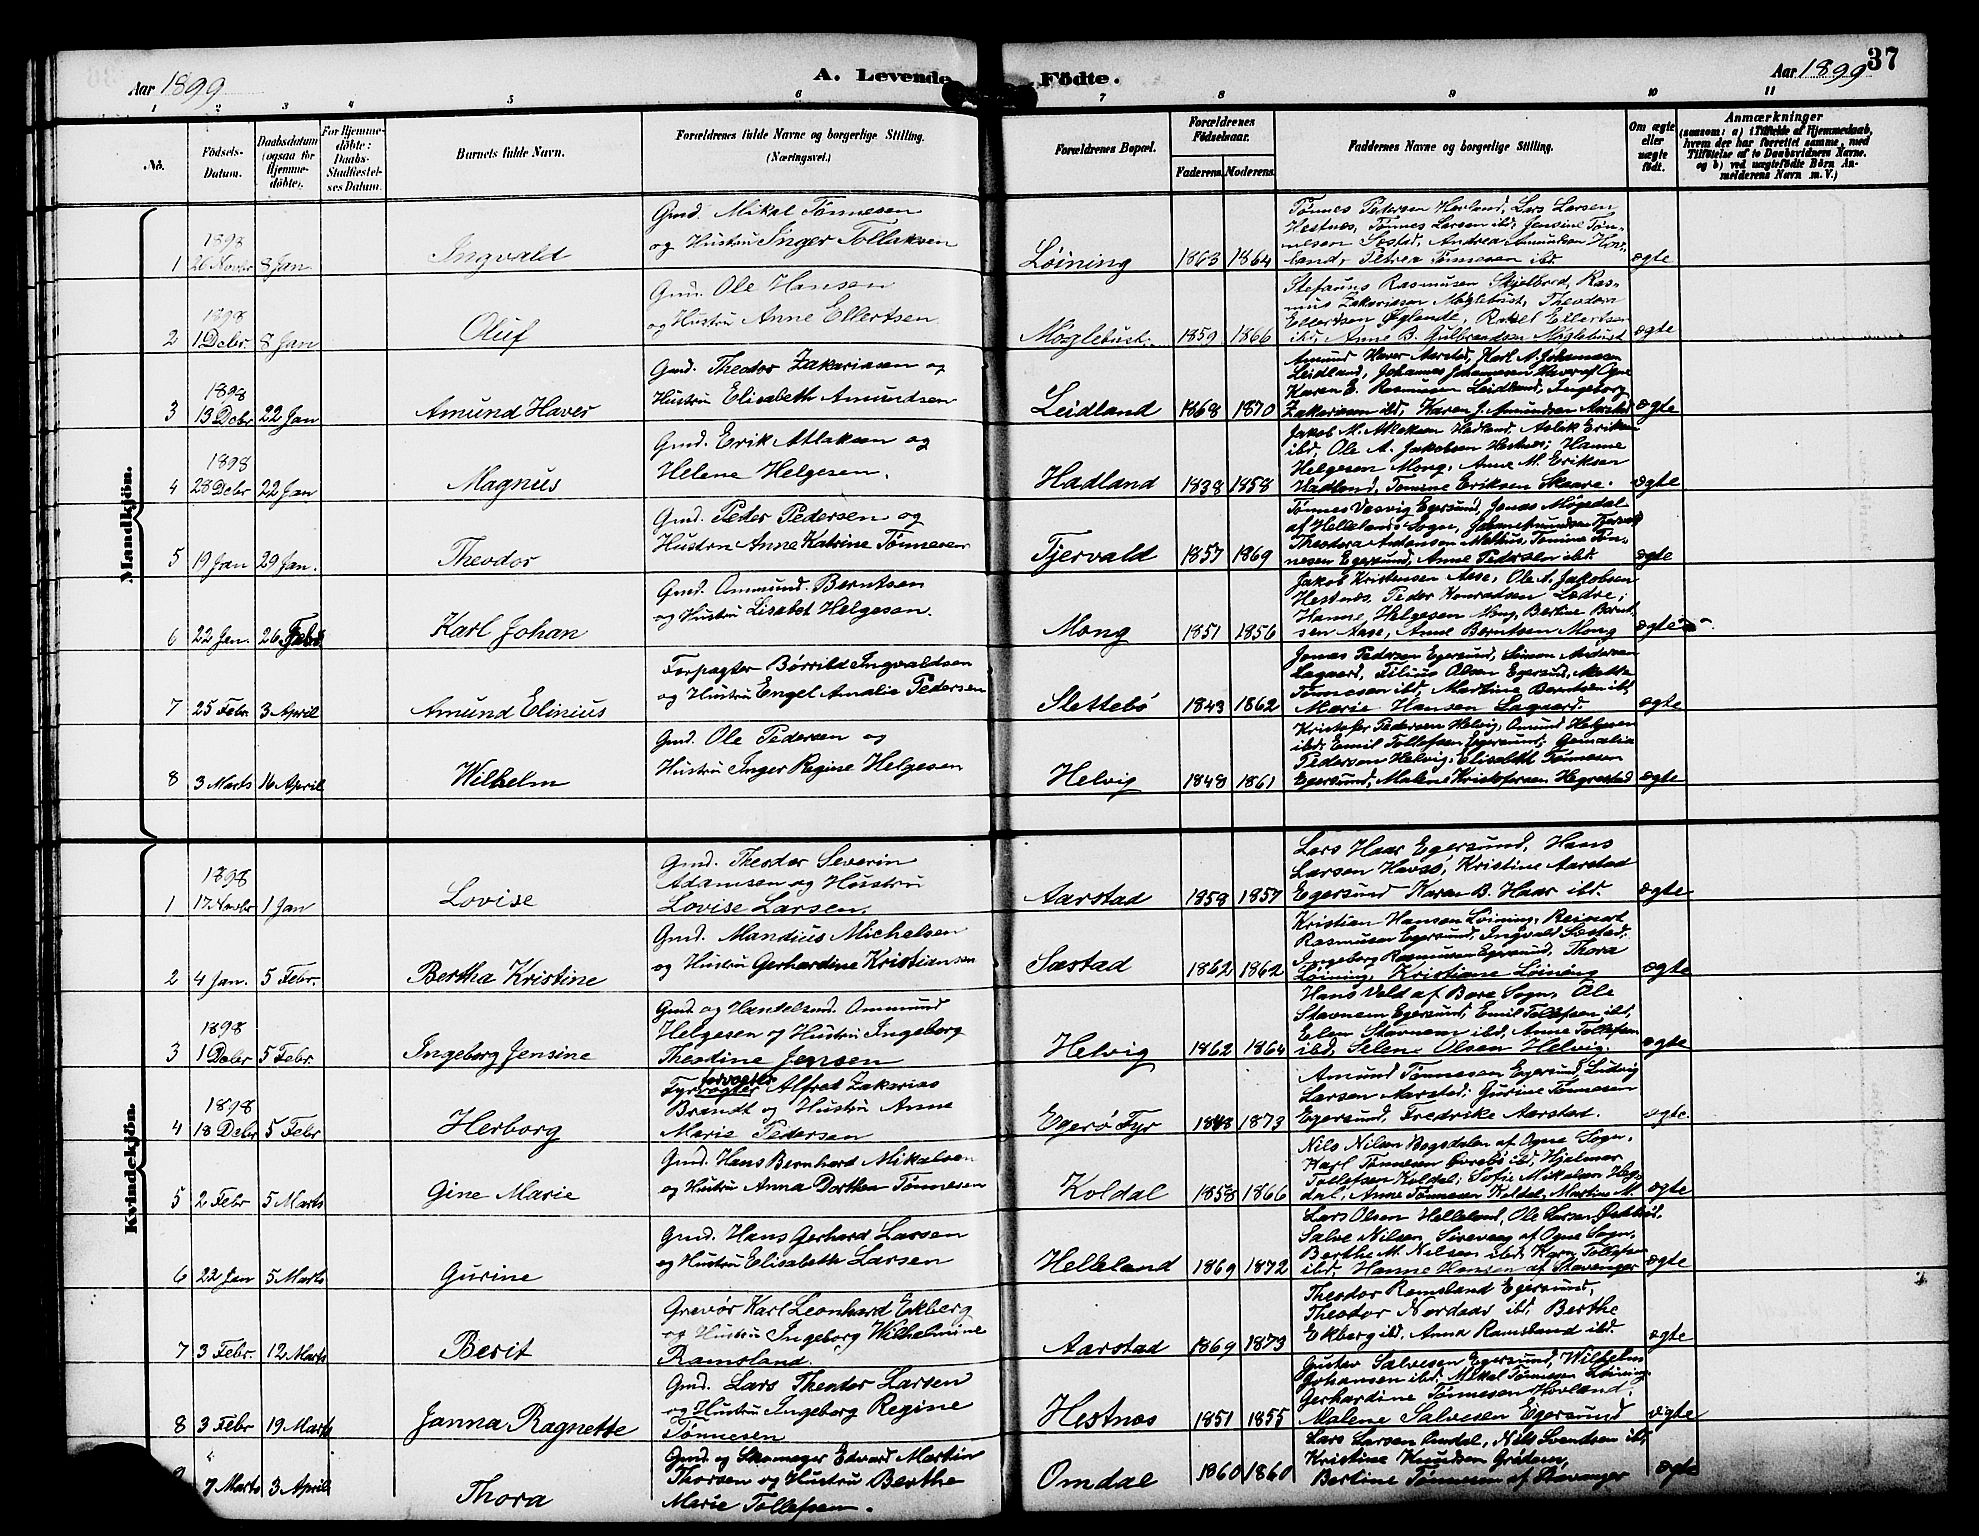 37
Aar 1899
A. Levende Födte.
Aar 1899
1 2 3 4 5 6 7 8 9 10 11
No.
Födsels-
Datum.
Daabsdatum
(ogsaa for
Hjemme-
döbte).
For Hjemme-
döbte:
Daabs-
Stadfæstel-
ses Datum.
Barnets fulde Navn.
Forældrenes fulde Navne og borgerlige Stilling.
(Næringsvei.)
Forældrenes Bopæl.
Forældrenes
Födselsaar.
Faderens. Moderens.
Faddernes Navne og borgerlige Stilling.
Om ægte
eller
uægte
födt.
Anmærkninger
(saasom: a) i Tilfælde af Hjemmedaab,
hvem der har forrettet samme, med
Tilföielse af to Daabsvidners Navne,
og b) ved uægtefödte Börn An-
melderens Navn m. V.)
Mandkjön.
1 1898 26 Novbr 8 Jan Ingvald
Gmd. Mikal Tønnesen
og Hustru Inger Tollaksen
Løining 1863 1864
Tønnes Pedersen Havland, Lars Larsen
Hestnes, Tønnes Larsen ibd, Jensine Tøn-
nesen Sæstad, Andrea Amundsen Hav-
land, Petrea Tønnesen ibd.
ægte
2 1898 1 Debr. 8 Jan Oluf
Gmd. Ole Hansen
og Hustru Anne Ellertsen
Møglebust. 1859 1866
Stefanus Rasmusen Skjelbred, Ras-
mus Zakariasen Møglebust, Theodor
Ellertsen Øglend, Rakel Ellertsen
ibd, Anne B. Gulbrandsen Møglebust
ægte
3 1898 13 Debr 22 Jan Amund Haver
Gmd. Theodor Zakariasen og
Hustru Elisabeth Amundsen
Leidland 1868 1870
Amund Haver Aarstad, Karl A. Johannesen
Leidland, Johannes Johannesen Haver af Ogne
Karen E. Rasmusen Leidland, Ingeborg
Zakariasen ibd, Karen J. Amundsen Aarstad
ægte
4 1898 28 Debr 22 Jan Magnus
Gmd. Erik Atlaksen og
Helene Helgesen.
Hadland 1838 1858
Jakob M. Atlaksen Hadland, Aslek Eriksen
ibd, Ole A. Jakobsen Hestnes; Hanne
Helgesen Mong, Anne M. Eriksen
Hadland, Tomine Eriksen Skaare.
ægte
5 19 Jan 29 Jan. Theodor
Gmd. Peder Pedersen og
Hustru Anne Katrine Tønnesen
Tjervald 1857 1869
Tønnes Vasvig Egersund, Jonas Møgedal
af Hellelands Sogn, Johan Amundsen Tjervald
Theodora Antonsen Mathus, Tomine Tøn-
nesen Egersund, Anne Pedersen ibd.
ægte
6 22 Jan. 26 Febr Karl Johan
Gmd. Ommund Berntsen
og Hustru Lisabet Helgesen.
Mong 1851 1856
Jakob Kristensen Aase, Ole A. Jakobsen
Hestnes, Peder Konradsen Lædre;
Hanne Helgesen Mong, Bertine Bernt-
sen Aase, Anne Berntsen Mong
ægte
7 25 Febr. 3 April Amund Elinius
Forpagter Børrild Ingvaldsen
og Hustru Engel Amalia Pedersen
Slettebø 1843 1862
Jonas Pedersen Egersund, Simon Andersen
Lagaard, Filius Olsen Egersund, Mathea
Tønnesen ibd, Martine Berntsen ibd,
Marie Hansen Lagaard.
ægte
8 3 Marts 16 April Wilhelm
Gmd. Ole Pedersen og
Hustru Inger Regine Helgesen
Helvig 1848 1861
Kristofer Pedersen Helvig, Omund Helgesen
ibd, Emil Tollefsen Egersund;
Pedersen Helvig, Elisabeth Tønnesen
Egersund, Malene Kristofersen Hegrestad
ægte
Kvindekjön.
1 1898 17 Novbr 1 Jan Lovise
Gmd. Theodor Severin
Adamsen og Hustru
Lovise Larsen.
Aarstad 1858 1857
Lars Haar Egersund, Hans
Larsen Havsø, Kristine Aarstad
Egersund Karen B. Haar ibd.
ægte
2 4 Jan. 5 Febr. Bertha Kristine
Gmd. Mandius Michelsen
og Hustru Gerhardine Kristiansen
Sæstad 1862 1862
Kristian Hansen Løining, Reinart
Rasmusen Egersund, Ingvald Sæstad;
Ingeborg Rasmusen Egersund, Thora
Løining, Kristiane Løining
ægte
3 1898 1 Debr 5 Febr. Ingeborg Jensine
Gmd. og Handelsmd. Ommund
Helgesen og Hustru Ingeborg
Theodine Jensen
Helvig 1862 1864
Hans Vold af Bore Sogn, Ole
Stavnem Egersund, Emil Tollefsen ibd,
Elen Stavnem ibd, Anne Tollefsen
ibd, Selene Olsen Helvig.
ægte
4 1898 18 Debr 5 Febr Herborg
Fyrforvalter Alfred Zakarias
Brandt og Hustru Anne
Marie Pedersen
Egerø Fyr 1848 1873
Amund Tønnesen Egersund, Ludvig
Larsen Aarstad; Gurine Tønnesen
Egersund, Fredrike Aarstad.
ægte.
5 2 Febr 5 Marts Gine Marie
Gmd. Hans Bernhard Mikalsen
og Hustru Anna Dorthea Tønnesen
Koldal 1858 1866
Nils Nilsen Bøgsdalen af Ogne Sogn,
Karl Tønnesen Øvrebø ibd, Hjalmar
Tollefsen Koldal; Sofie Mikalsen Heg-
dal, Anne Tønnesen Koldal, Martine M.
ægte
6 22 Jan 5 Marts Gurine
Gmd. Hans Gerhard Larsen
og Hustru Elisabeth Larsen
Helleland 1869 1872
Lars Olsen Helleland, Ole Larsen
Salve Nilsen, Sirevaag af Ogne Sogn,
Berthe M. Nilsen ibd, Karn Tollefsen
ibd, Hanne Hansen af Stavanger
ægte
7 3 Febr. 12 Marts Berit
Gravør Karl Leonhard Ekberg
og Hustru Ingeborg Wilhelmine
Ramsland.
Aarstad 1869 1873
Theodor Ramsland Egersund,
Theodor Nordaas ibd, Berthe
Ekberg ibd, Anna Ramsland ibd.
ægte
8 3 Febr 19 Marts Janna Ragnette
Gmd. Lars Theodor Larsen
og Hustru Ingeborg Regine
Tønnesen
Hestnes 1851 1855
Gustav Salvesen Egersund, Wilhelm
Johansen ibd, Mikal Tønnesen Løining
Gerhardine Tønnesen Hovland;
Malene Salvesen Egersund
ægte
7 Marts 3 April Thora
Gmd og Skomager Edvard Martin
Thorsen og Hustru Berthe
Marie Tollefsen.
Omdal 1860 1860
Lars Larsen Omdal, Nils Svendsen ibd,
Kristine Knudsen Grødem,
Bertine Tønnesen af Stavanger
ægte